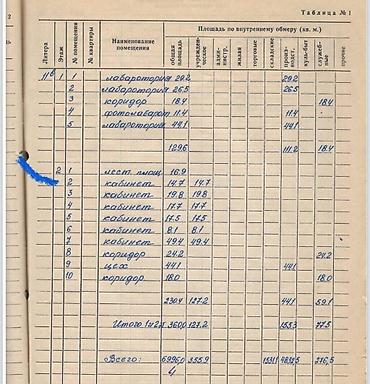 Таблица № 1
Площадь по внутреннему обмеру (кв. м.)
Литера Этаж № помещения № квартиры Наименование помещения общая площадь учрежденческие жилая торговые складские производст. культ-быт служебные прочие
11в 1 1 лаборатория 29.2 29.2
2 лаборатория 26.5 26.5
3 коридор 18.4 18.4
4 фотолаборат 11.4 11.4
5 лаборатория 44.1 44.1
129.6 111.2 18.4
2 1 лест. площ 16.9
2 кабинет 14.7 14.7
3 кабинет 19.8 19.8
4 кабинет 17.7 17.7
5 кабинет 17.5 17.5
6 кабинет 8.1 8.1
7 кабинет 49.4 49.4
8 коридор 24.2 24.2
9 цех 44.1 44.1
10 коридор 18.0 18.0
230.4 127.2 44.1 59.1
Итого 1и2э 360.0 127.2 155.3 77.5
Всего:
4